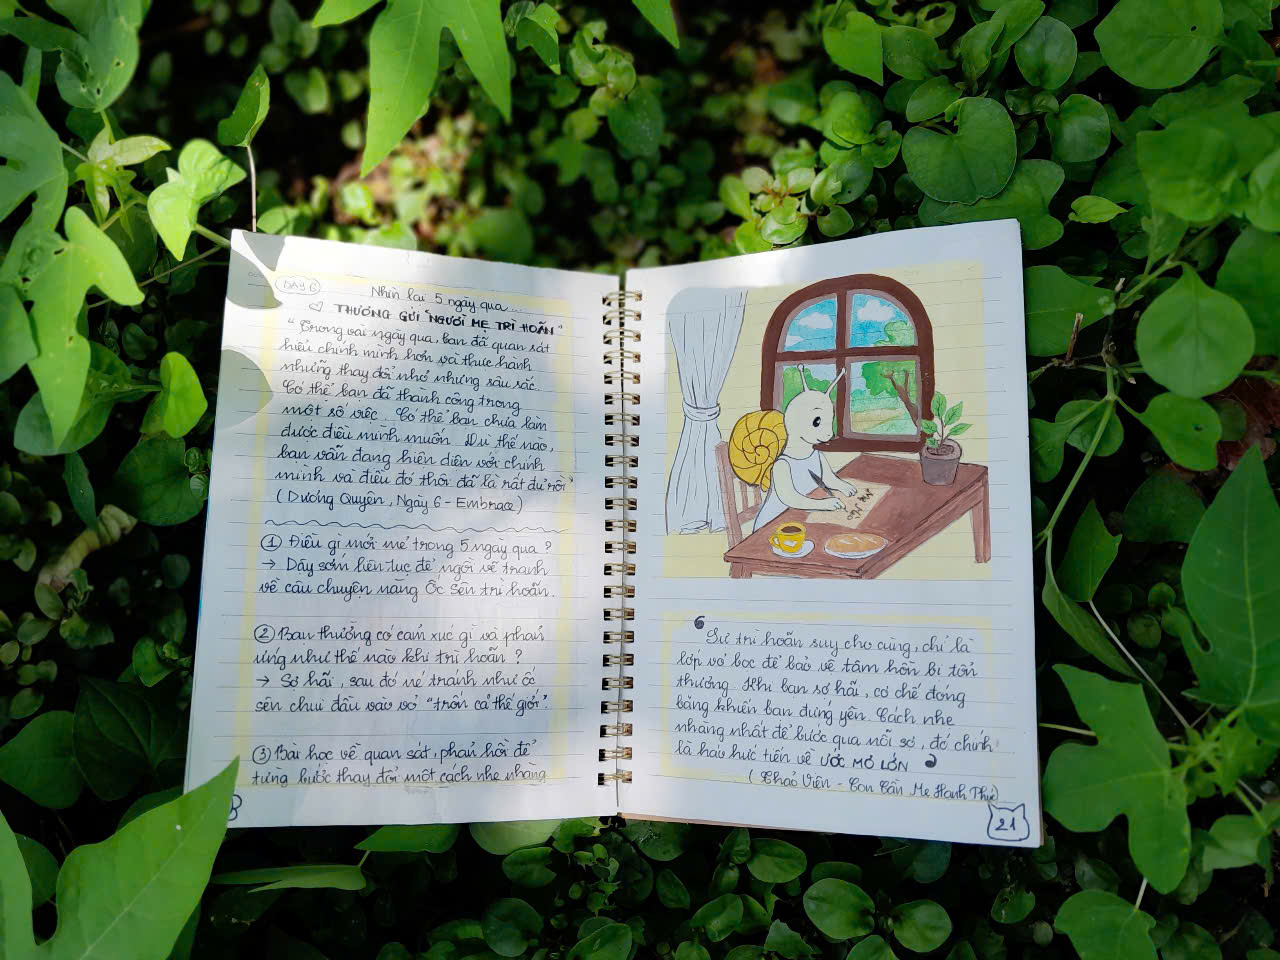 DAY 6
Nhìn lại 5 ngày qua...
♡ THƯƠNG GỬI "NGƯỜI MẸ TRÌ HOÃN"
"Trong vài ngày qua, bạn đã quan sát
hiểu chính mình hơn và thực hành
những thay đổi nhỏ nhưng sâu sắc.
Có thể bạn đã thành công trong
một số việc. Có thể bạn chưa làm
được điều mình muốn. Dù thế nào,
bạn vẫn đang hiện diện với chính
mình và điều đó thôi đã là rất đủ rồi"
(Dương Quyên, Ngày 6 - Embrace)
① Điều gì mới mẻ trong 5 ngày qua?
→ Dậy sớm liên tục để ngồi vẽ tranh
về câu chuyện nàng Ốc Sên trì hoãn.
② Bạn thường có cảm xúc gì và phản
ứng như thế nào khi trì hoãn?
→ Sợ hãi, sau đó né tránh như ốc
sên chui đầu vào vỏ "trốn cả thế giới".
③ Bài học về quan sát, phản hồi để
từng bước thay đổi một cách nhẹ nhàng
Sự trì hoãn suy cho cùng, chỉ là
lớp vỏ bọc để bảo vệ tâm hồn bị tổn
thương. Khi bạn sợ hãi, cơ chế đóng
băng khiến bạn đứng yên. Cách nhẹ
nhàng nhất để bước qua nỗi sợ, đó chính
là háo hức tiến về ƯỚC MƠ LỚN
(Thảo Viên - Con Cần Mẹ Hạnh Phúc)
21